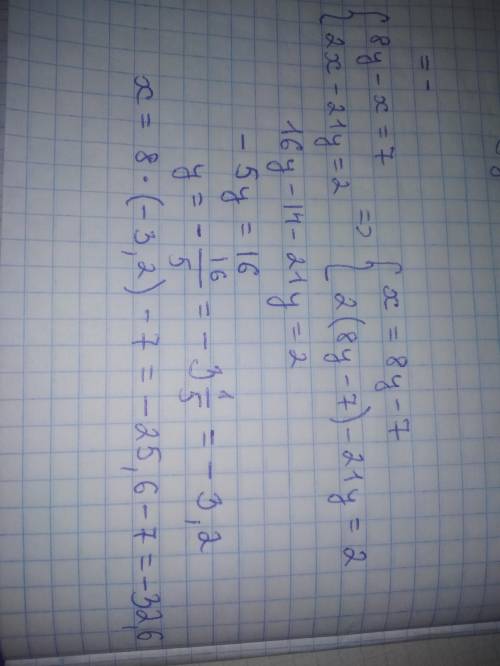 = -
{ 8y - x = 7
{ 2x - 21y = 2 => { x = 8y - 7
{ 2(8y - 7) - 21y = 2
16y - 14 - 21y = 2
- 5y = 16
y = - 16/5 = - 3 1/5 = - 3,2
x = 8 · (- 3,2) - 7 = - 25,6 - 7 = - 32,6